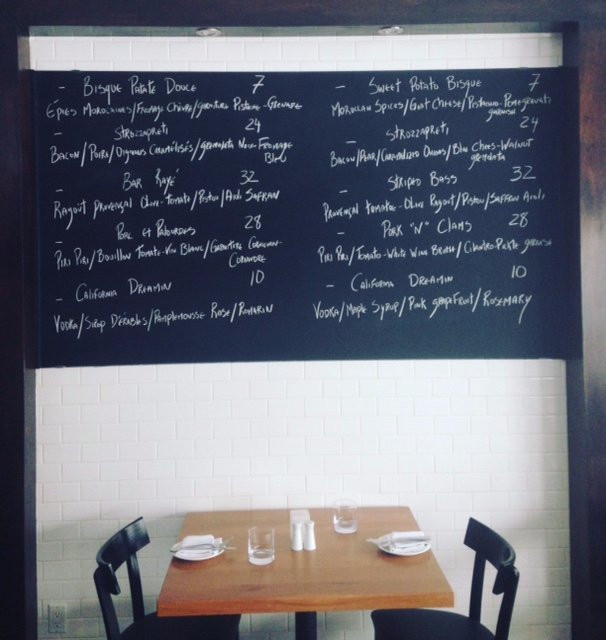 - Bisque Patate Douce 7
Épices Marocaines/Fromage Chèvre/garniture Pistache-Grenade
- Strozzapreti 24
Bacon/Poire/Oignons Caramélisés/gremolata Noix-Fromage
Bleu
- Bar Rayé 32
Ragoût Provençal Olive-Tomato/Pistou/Aioli Saffran
- Porc et Palourdes 28
Piri Piri/Bouillon Tomate-Vin Blanc/Garniture
Coriandre
- California Dreamin 10
Vodka/Sirop D'érables/Pamplemousse Rose/Romarin
- Sweet Potato Bisque 7
Moroccan Spices/Goat Cheese/Pistachio-Pomegranate
garnish
- Strozzapreti 24
Bacon/Pear/Caramelized Onions/Blue Chees-Walnut
gremolata
- Striped Bass 32
Provençal Tomatoe-Olive Ragout/Pistou/Saffron Aioli
- Pork "N" Clams 28
Piri Piri/Tomato-White Wine Broth/Cilantro-Pickle garnish
- California Dreamin 10
Vodka/Maple Syrup/Pink grapefruit/Rosemary